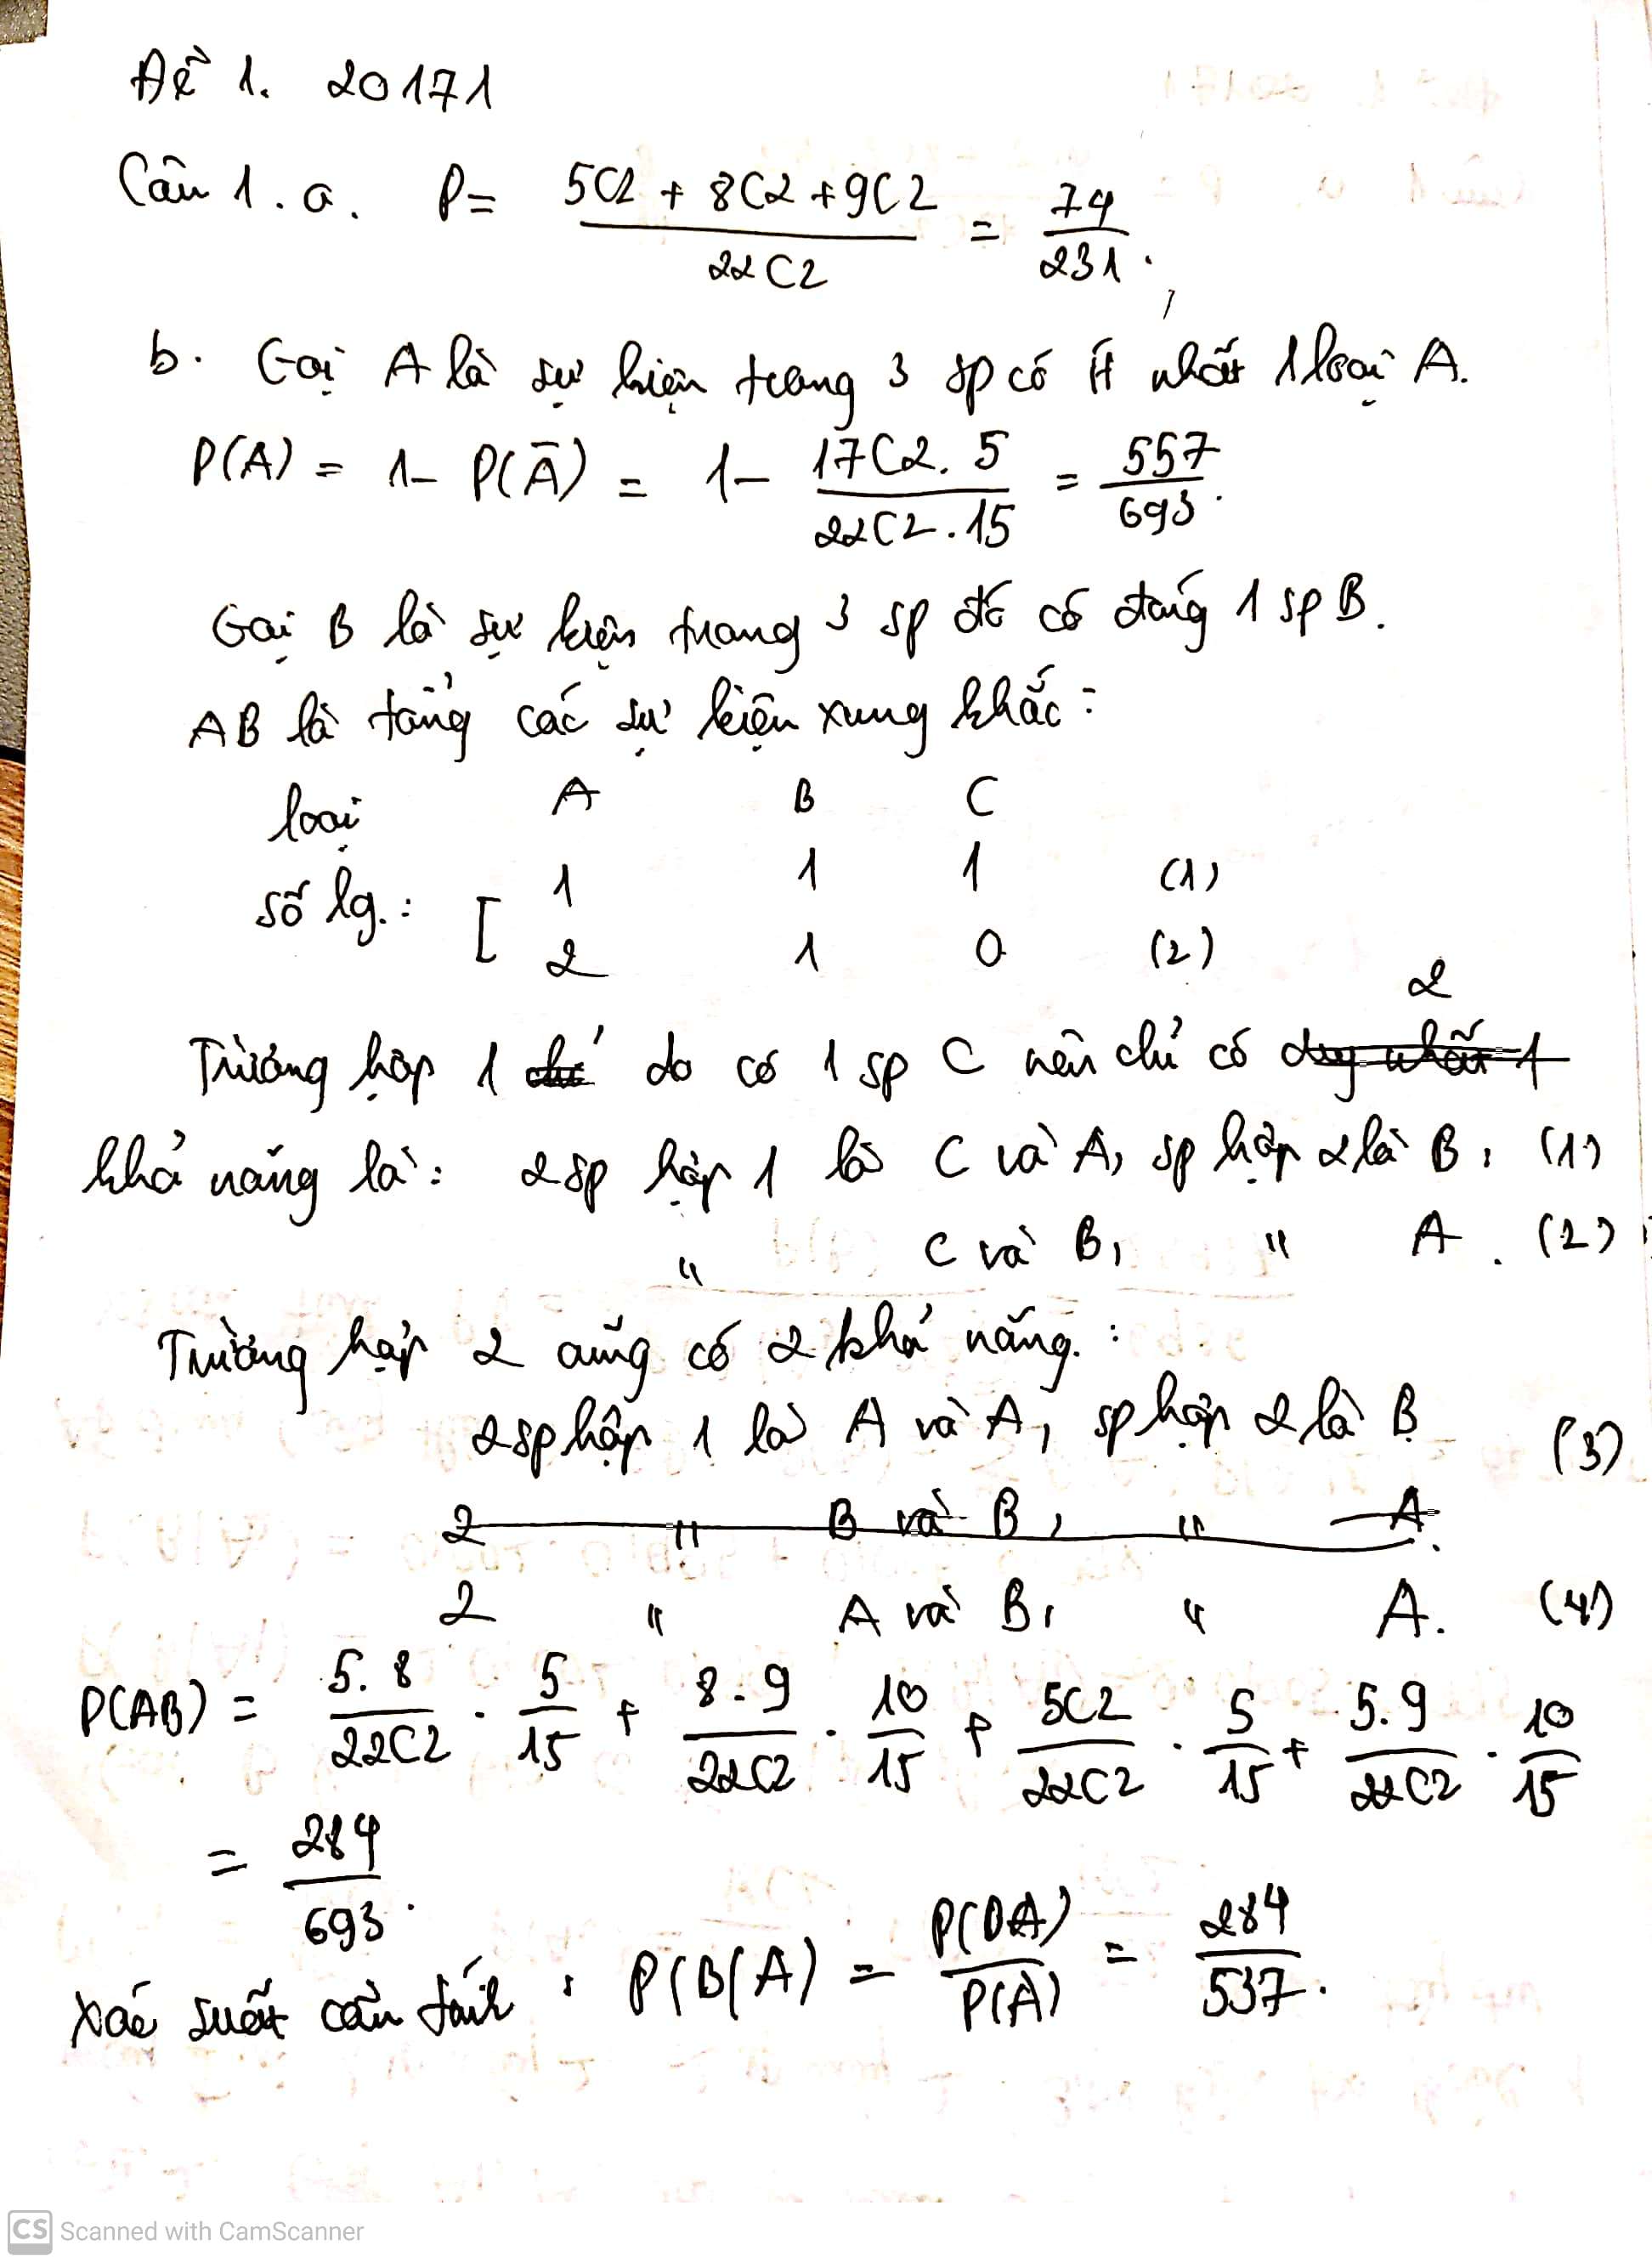 Đề 1. 20171
Câu 1. a. P = (5C2 + 8C2 + 9C2) / 22C2 = 74/231.,
b. Gọi A là sự kiện trong 3 sp có ít nhất 1 loại A.
P(A) = 1 - P(Ā) = 1 - (17C2. 5) / (22C2. 15) = 557/693.
Gọi B là sự kiện trong 3 sp đó có đúng 1 sp B.
AB là tổng các sự kiện xung khắc:
loại A B C
số lg.: [ 1 1 1 (1)
2 1 0 (2)
2
Trường hợp 1 do có 1 sp C nên chỉ có
khả năng là: 2 sp hộp 1 là C và A, sp hộp 2 là B, (1)
" C và B, " A. (2)
Trường hợp 2 cũng có 2 khả năng.:
2 sp hộp 1 là A và A, sp hộp 2 là B (3)
2 " B và B, " A.
2 " A và B, " A. (4)
P(AB) = 5.8/22C2 . 5/15 + 8.9/22C2 . 10/15 + 5C2/22C2 . 5/15 + 5.9/22C2 . 10/15
= 284/693.
Xác suất cần tính: P(B|A) = P(BA)/P(A) = 284/537.
CS Scanned with CamScanner